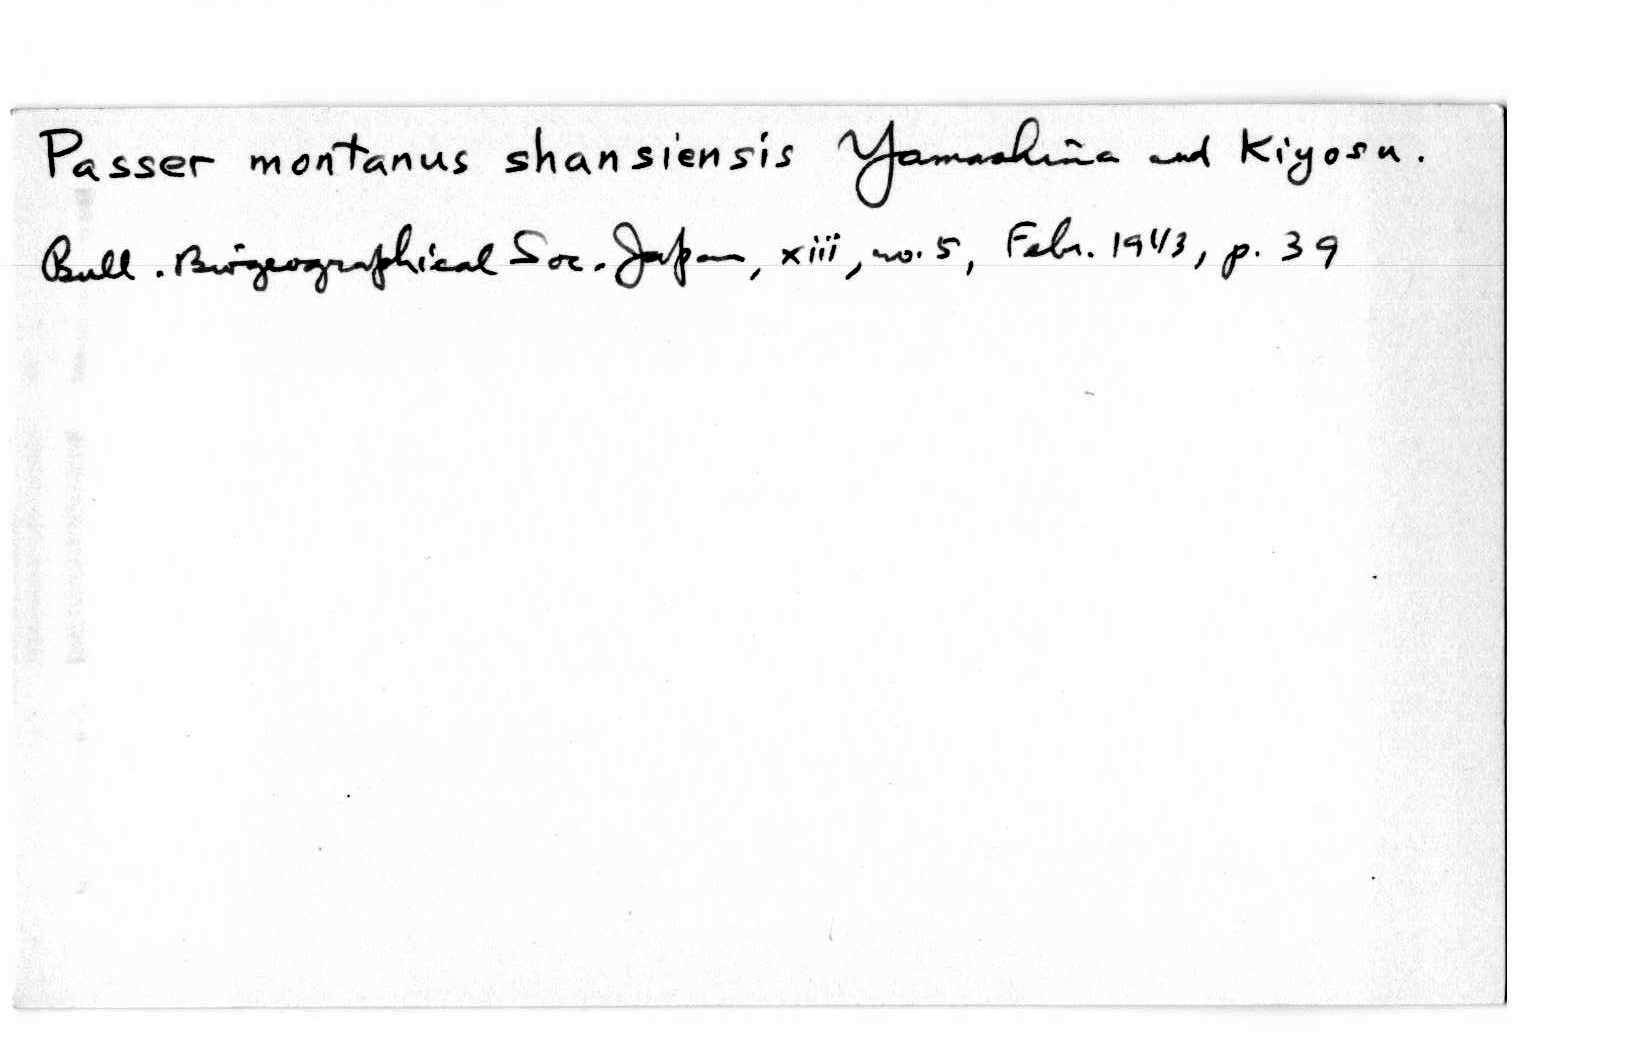 Passer montanus shansiensis Yamashina and Kiyosu.
Bull. Biogeographical Soc. Japan, xiii, no. 5, Febr. 1943, p. 39